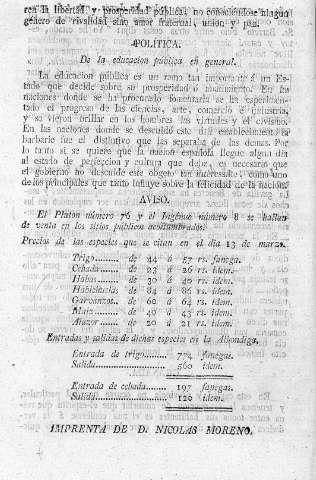 ren la libertad y prosperidad pública, no conociendose ningun
género de rivalidad sino amor fraternal, union y paz.
POLÍTICA.
De la educacion pública en general.
La educacion pública es un ramo tan importante á un Es-
tado que decide sobre su prosperidad ó abatimiento. En las
naciones donde se ha procurado fomentarla se ha esperimen-
tado el progreso de las ciencias, artes, comercio é industria,
y se vieron brillar en los hombres las virtudes y el civismo.
En las naciones donde se descuidó este util establecimiento la
barbarie fue el distintivo que las separaba de las demas. Por
lo tanto si se quiere que la nacion española llegue algun dia
al estado de perfeccion y cultura que debe, es necesario que
el gobierno no descuide este objeto tan interesante, como uno
de los principales que tanto influye sobre la felicidad de la nacion.
AVISO.
El Platon número 76 y el Ingenuo número 8 se hallan
de venta en los sitios públicos acostumbrados.
Precios de las especies que se citan en el dia 13 de marzo.
Trigo......... de 44 á 57 rs. fanega.
Cebada........ de 23 á 26 rs. idem.
Habas......... de 30 á 40 rs. idem.
Habichuelas de 84 á 86 rs. idem.
Garvanzos.. de 60 á 64 rs. idem.
Maiz.......... de 40 á 43 rs. idem.
Alazor........ de 20 á 21 rs. idem.
Entradas y salidas de dichas especies en la Alhondiga.
Entrada de trigo........ 774 fanegas.
Salida................. 560 idem.
Entrada de cebada........ 197 fanegas.
Salida................. 120 idem.
IMPRENTA DE D. NICOLAS MORENO.